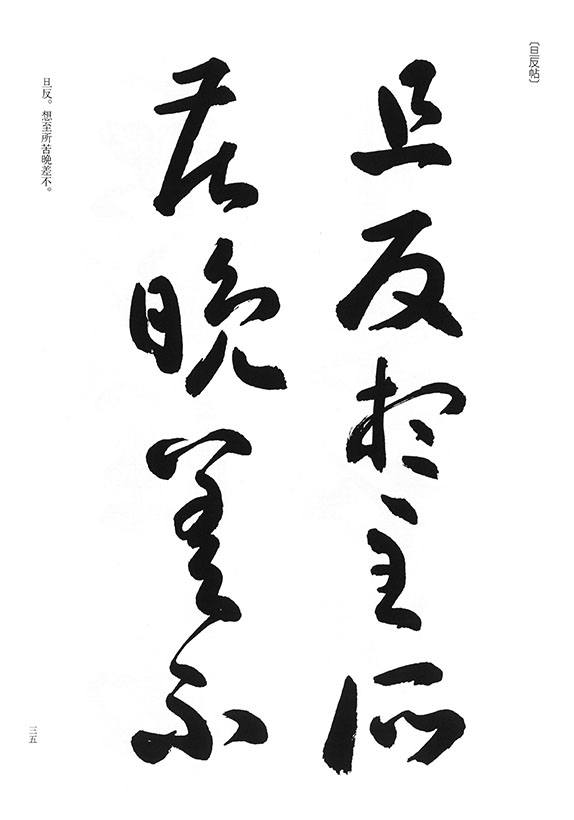 〔旦反帖〕
旦反想至所
苦晩差不
旦反。想至所苦晩差不。
三五